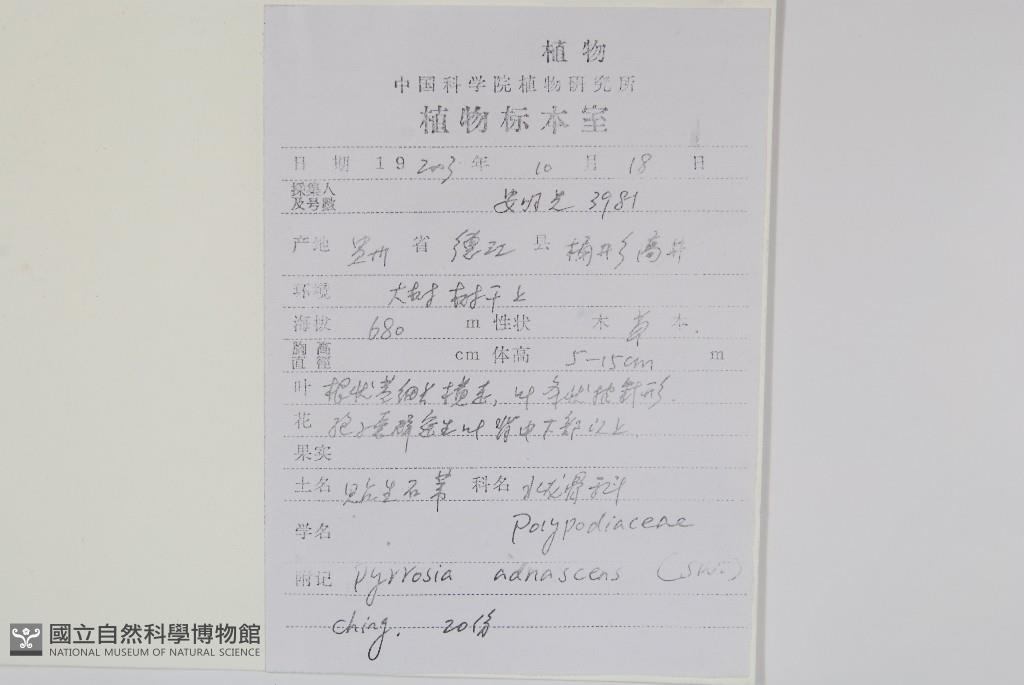 植物
中国科学院植物研究所
植物标本室
日期 19 2003 年 10 月 18 日
採集人
及号数 安明先 3981
产地 贵州 省 德江 县 桶井乡高井
环境 大树树干上
海拔 680 m 性状 木 草 本.
胸高
直徑 cm 体高 5-15cm m
叶 根状茎细长横走, 叶 披针形.
花 孢子囊群 生叶背中下部以上.
果实
土名 贴生石苇 科名 水龙骨科
学名 Polypodiaceae
附记 Pyrrosia adnascens (Sw.)
Ching. 20份
國立自然科學博物館
NATIONAL MUSEUM OF NATURAL SCIENCE